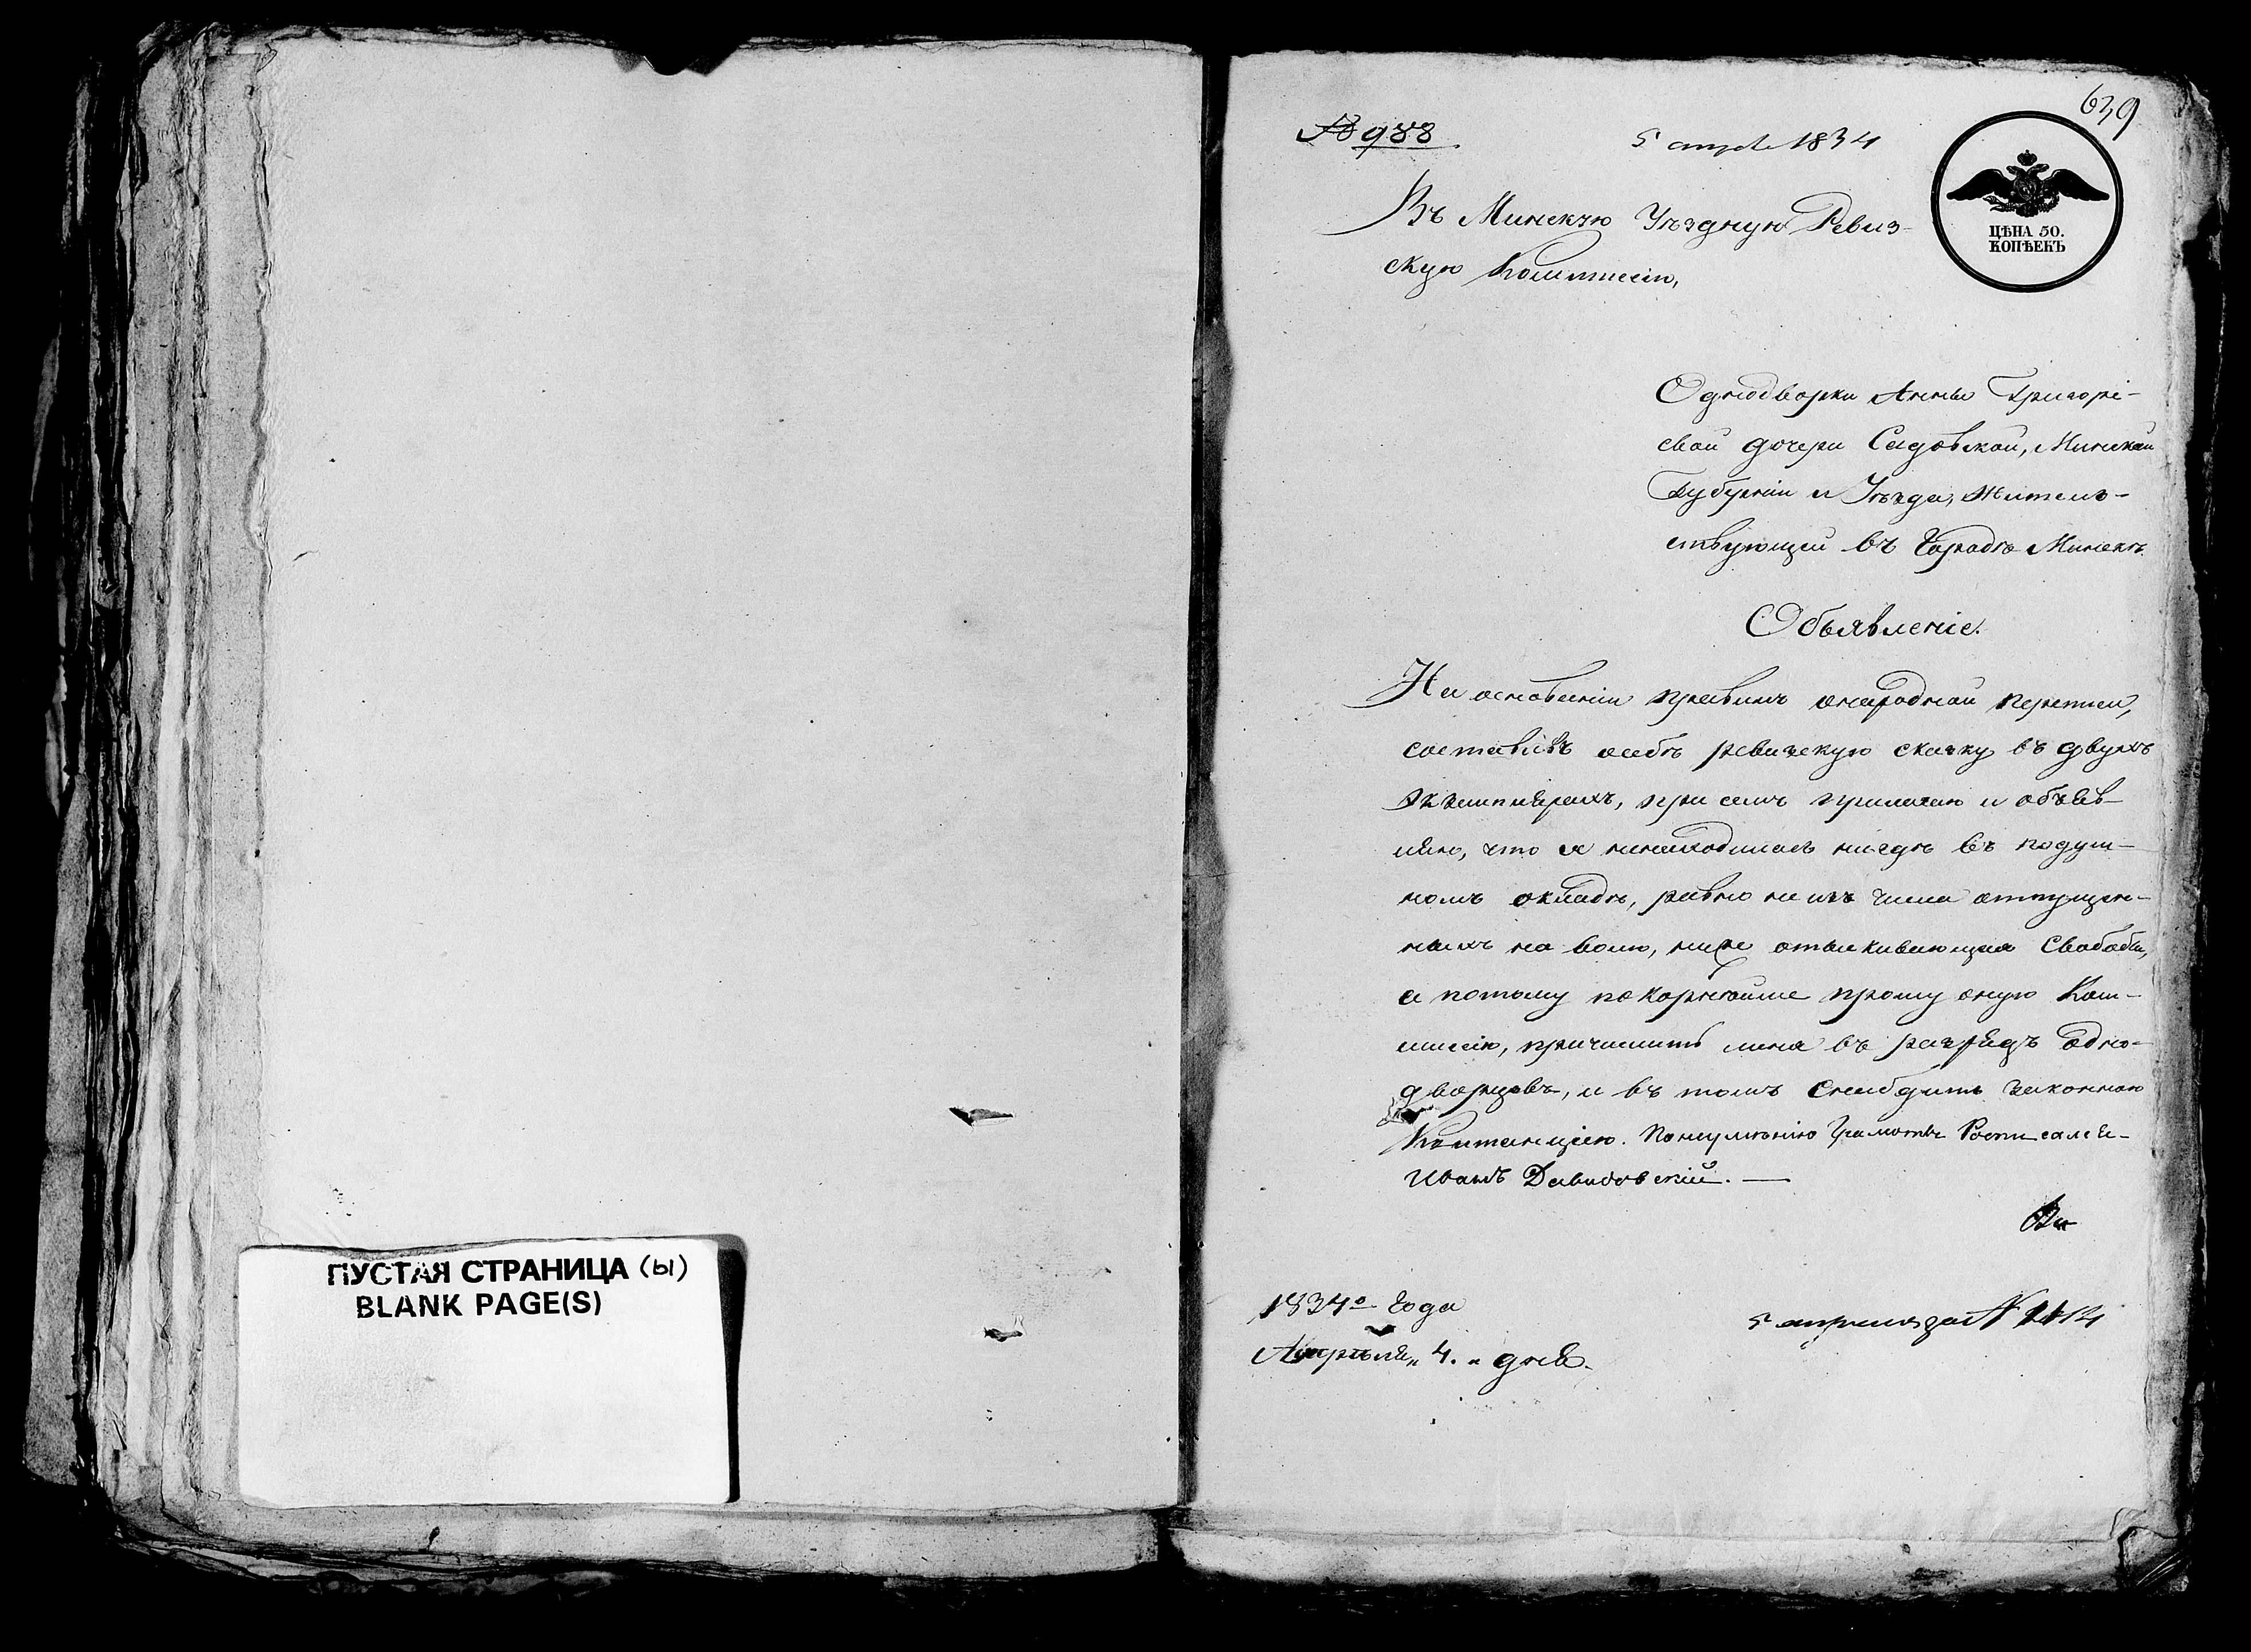 ПУСТАЯ СТРАНИЦА (ы)
BLANK PAGE(S)
639
№ 988
5 апрель 1834
ЦѢНА 50.
КОПѢЕКЪ
Въ Минскую Уѣздную Ревиз-
скую Коммисію,
Однодворки Анны Григорі-
евой дочери Садовской, Минской
Губерніи и Уѣзда, житель-
ствующей въ Городѣ Минскѣ
Объявленіе.
На основаніи правилъ онародной переписи,
составивъ особѣ ревизскую сказку въ двухъ
экземплярахъ, при семъ прилагаю и объяв-
ляю, что я ненаходилась нигдѣ въ подуш-
номъ окладѣ, равно не изъ числа отпущен-
ныхъ на волю, ниже отыскивающая Свободы,
а потому покорнѣйше прошу оную Ком-
мисію, причислить меня въ разрядъ одно-
дворцовъ, и въ томъ снабдить законною
Квитанціею. Понеумѣнію Грамотѣ Росписался
Иванъ Давидовскій. —
1834го Года
Апрѣля „ 4. „ дня.
5 апреля за N 1414